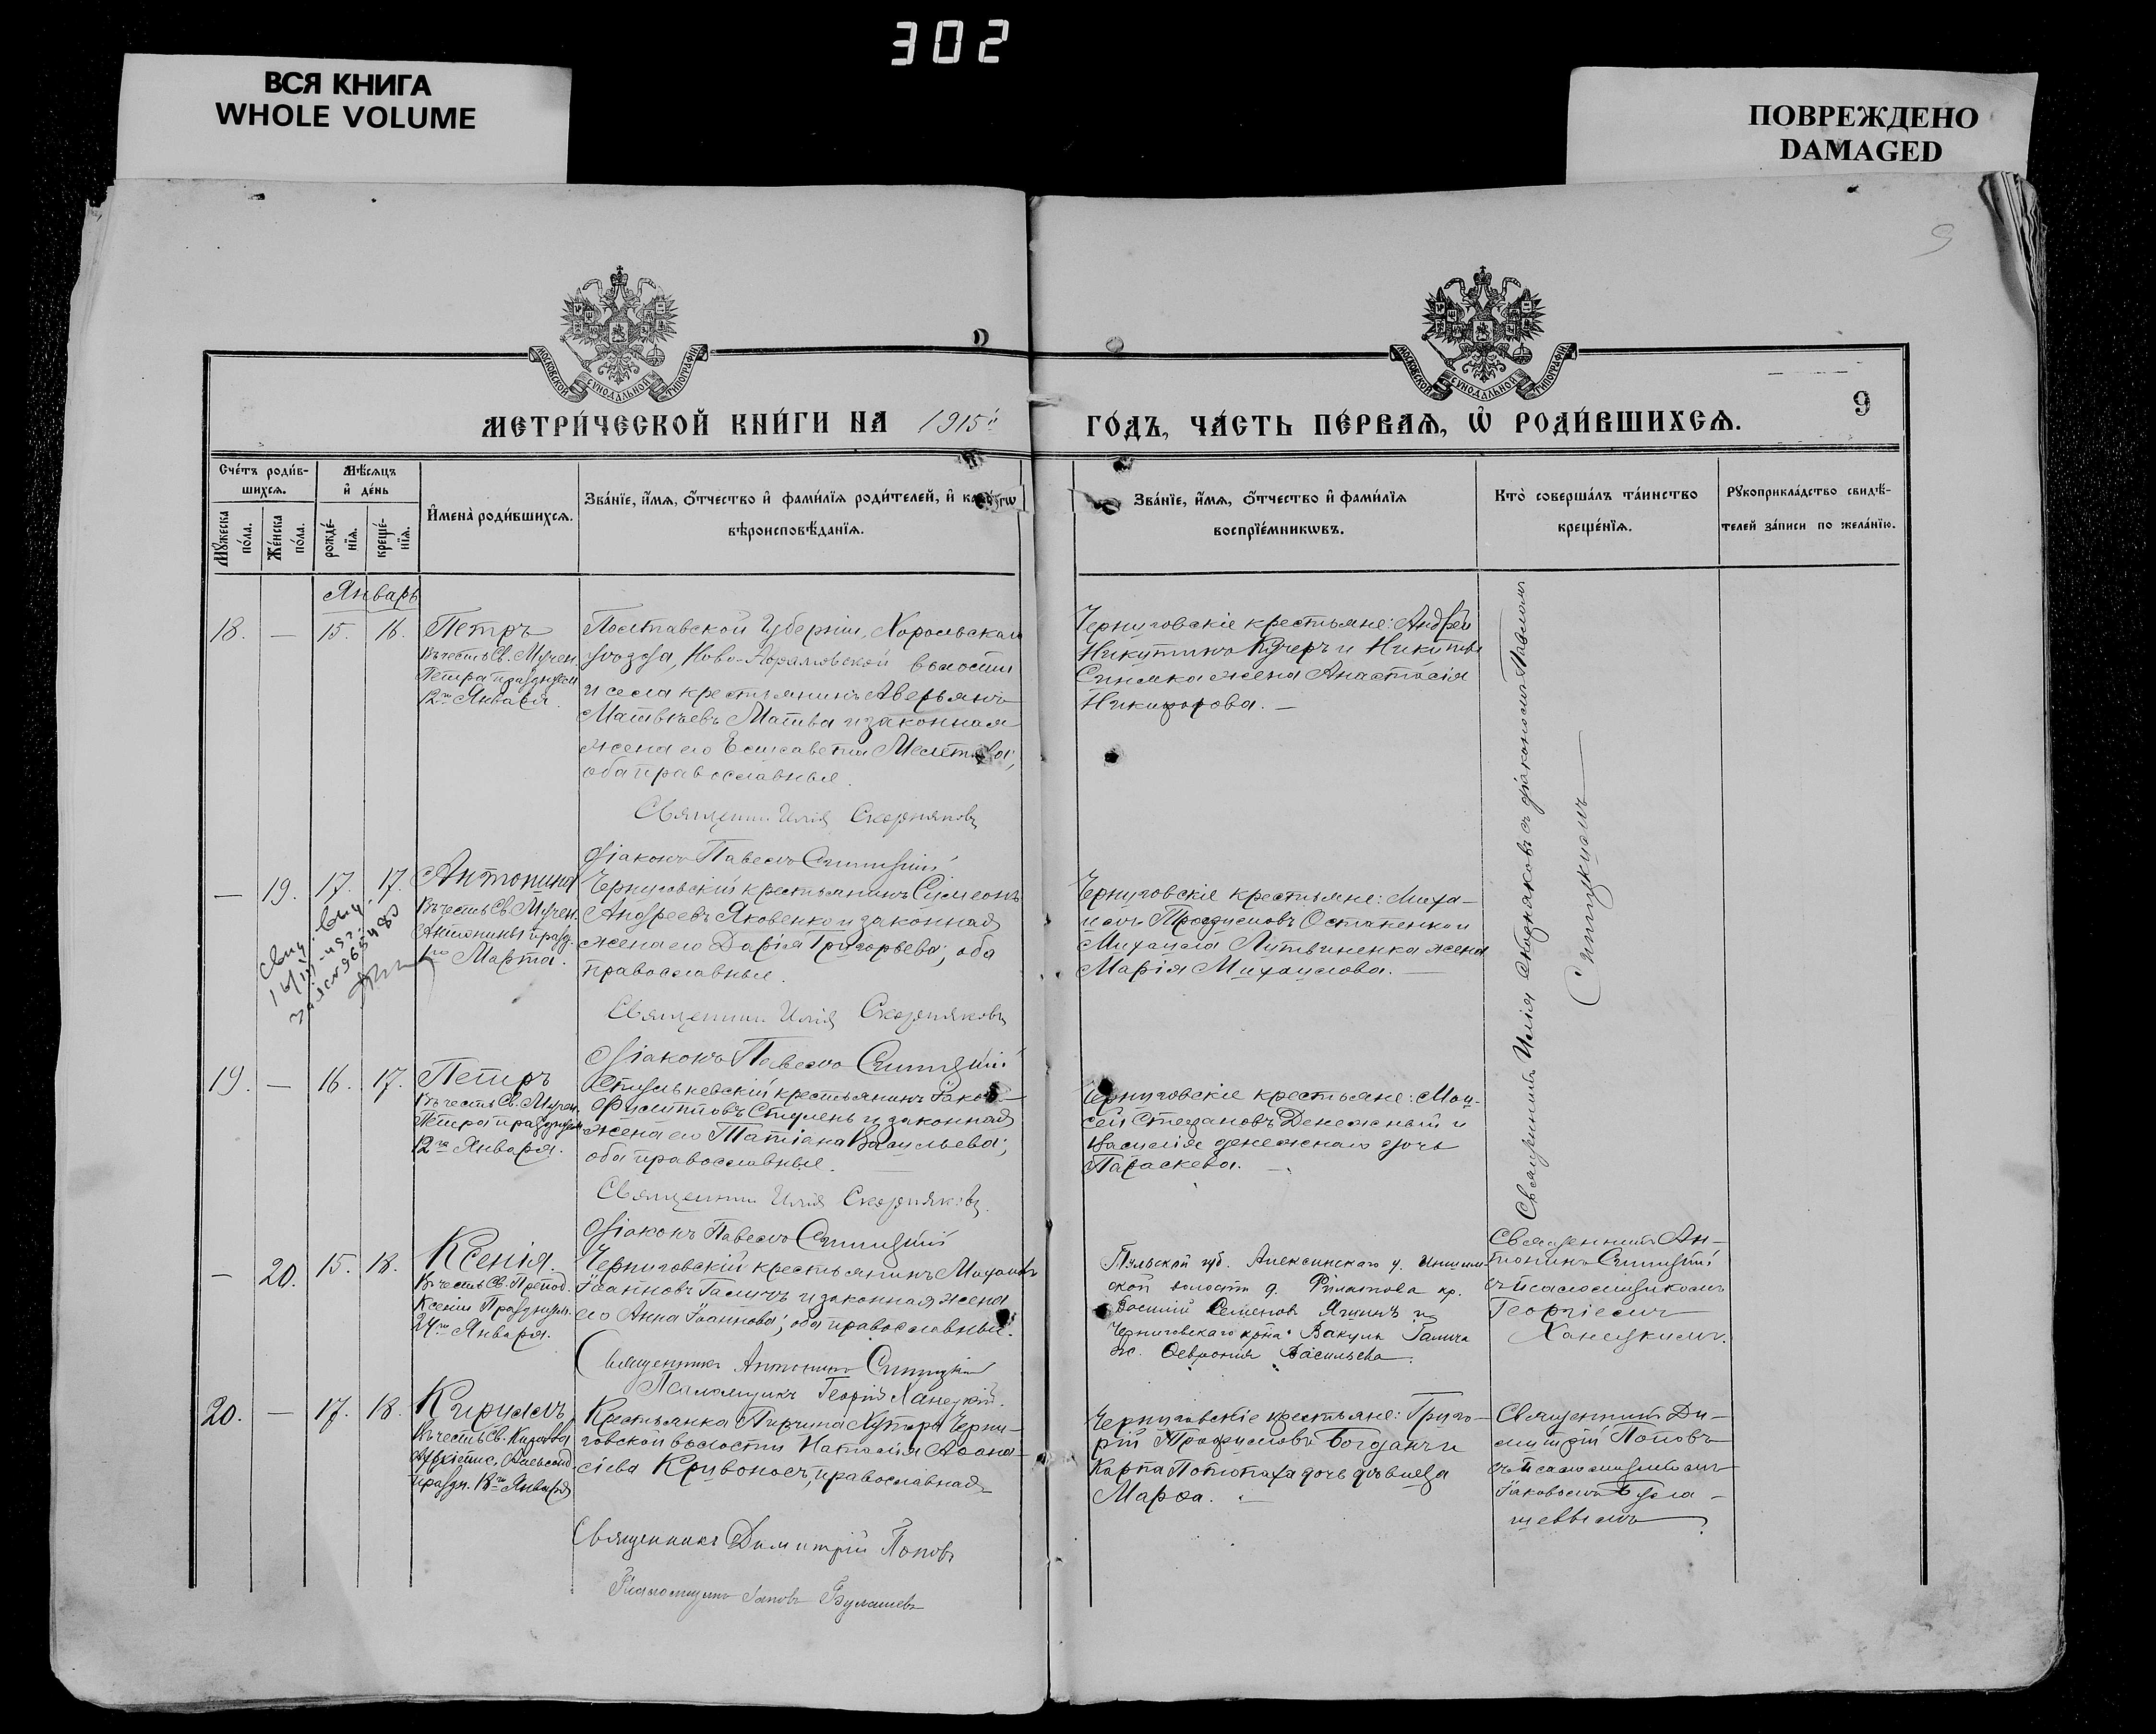 302
ВСЯ КНИГА
WHOLE VOLUME
ПОВРЕЖДЕНО
DAMAGED
9
МОСКОВСКОЙ СѴНОДАЛЬНОЙ ТИПОГРАФІИ
МОСКОВСКОЙ СѴНОДАЛЬНОЙ ТИПОГРАФІИ
МЕТРИ́ЧЕСКОЙ КНИ́ГИ НА 1915й
ГО́ДЪ, ЧА́СТЬ ПЕ́РВАЯ, Ѡ҆ РОДИ́ВШИХСЯ.
9
Сче́тъ роди́в-
шихся.
Мѣ́сяцъ
и҆ де́нь
Мꙋ́жеска
по́ла.
Же́нска
по́ла.
рожде́-
нїя.
креще́-
нїя.
И҆мена̀ роди́вшихся.
Зва́нїе, и҆́мя, ѻ҆́тчество и҆ фами́лїя роди́телей, и҆
вѣроисповѣ́данїя.
Зва́нїе, и҆́мя, ѻ҆́тчество и҆ фами́лїя
воспрїе́мникѡвъ.
Кто̀ соверша́лъ та́инство
креще́нїя.
Рꙋкоприкла́дство свидѣ́-
телей за́писи по жела́нїю.
Январь
18. — 15. 16.
Петръ
Въ честь Св. Мучен.
Петра празднуем.
12го Января.
Полтавской Губерніи, Хорольскаго
уѣзда, Ново-Аврамовской волости
и села крестьянинъ Аверьянъ
Матвѣевъ Матва и законная
жена его Елисавета
оба православные.
Священникъ Илія Скорняковъ
Діаконъ Павелъ Синицкій
Черниговскіе крестьяне: Андрей
Никитинъ Кучеръ и Никиты
Синяка жена Анастасія
Никифорова. —
Священникъ Илія Скорняковъ съ діакономъ Павломъ
Синицкимъ
— 19. 17. 17.
Антонина
Въ честь Св. Мучен.
Антонины празд.
1го Марта.
Черниговскій крестьянинъ Симеонъ
Андреевъ Яковенко и законная
жена его Дарія Григорьева; оба
православные.
Священникъ Илія Скорняковъ
Діаконъ Павелъ Синицкій
Черниговскіе крестьяне: Миха-
илъ Трофимовъ Остапенко и
Михаила Литвиненка жена
Марія Михаилова. —
19. — 16. 17.
Петръ
Въ честь Св. Мучен.
Петра празднуем.
12го Января.
крестьянинъ Іаковъ
Филипповъ Ступень и законная
жена его Татіана Васильева;
оба православные.
Священникъ Илія Скорняковъ.
Діаконъ Павелъ Синицкій
Черниговскіе крестьяне: Мои-
сей Стефановъ Денежный и
Василія Денежнаго дочь
Параскева. —
— 20. 15. 18.
Ксенія.
Въ честь Св. Препод.
Ксеніи Празднуем.
24го Января.
Черниговскій крестьянинъ Михаилъ
Іоанновъ Галичъ и законная жена
его Анна Іоаннова; оба православные.
Священникъ Антонинъ Синицкій
Псаломщикъ Георгій Ханецкій.
Тульской губ. Алексинскаго у.
ской волости д. Филатова кр.
Василій Семеновъ Ягинъ и
Черниговскаго крна Вакулы Галича
ж. Ѳевронія Васильева.
Священникъ Ан-
тонинъ Синицкій
съ псаломщикомъ
Георгіемъ
Ханецкимъ.
20. — 17. 18.
Кириллъ
Въ честь Св. Кирилла
Архіепис. Александ.
праздн. 18го Января
Крестьянка Хутора Черни-
говской волости Наталія Аѳана-
сіева Кривоносъ, православная
Священникъ Димитрій Поповъ
Псаломщикъ Іаковъ Булашевъ
Черниговскіе крестьяне: Григо-
рій Трофимовъ Богданъ и
Карпа Потопаха дочь дѣвица
Марѳа. —
Священникъ Ди-
митрій Поповъ
съ псаломщикомъ
Іаковомъ Була-
шевымъ